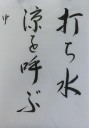 打ち水
涼を呼ぶ